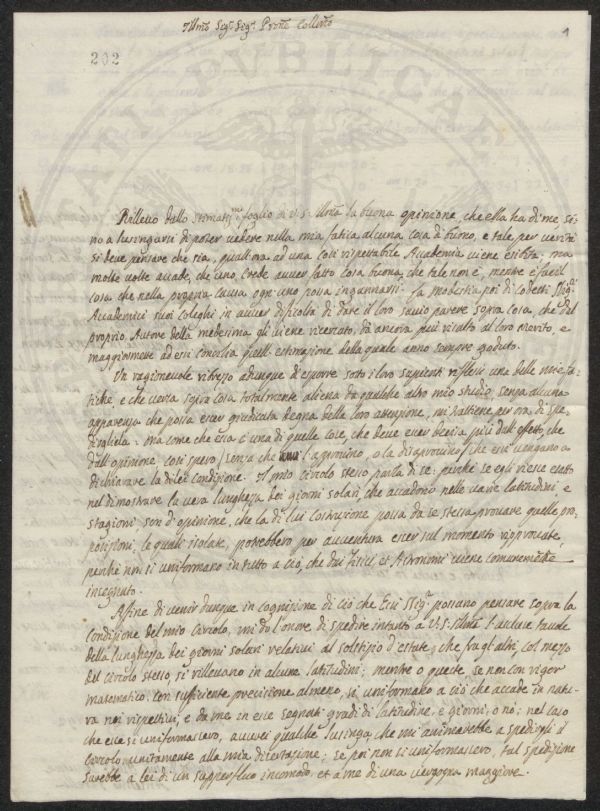 Illmo Sigr Sigr Prone Collmo
1
202
Rillevo dallo stimatismo foglio di V. S. Illma la buona opinione, che ella ha di me, si-
no a lusingarsi di poter vedere nella mia fatica alcuna cosa di buono, e tale per verità
si deve pensare che sia, qualora ad una così rispettabile Academia viene esibita; ma
molte volte accade, che uno crede aver fatto cosa buona, che tale non è, mentre è facil
cosa che nella propria causa ogn'uno possa ingannarsi. La modestia poi di codesti SSigri
Academici suoi coleghi in aver dificoltà di dare il loro savio parere sopra cosa, che dal
proprio Autore della medesima gli viene ricercato, dà ancora più risalto al loro merito, e
maggiormente ad essi concilia quell'estimazione della quale anno sempre goduto.
Un ragionevole ribrezzo adunque di esporre sotto i loro sapienti riflessi una delle mie fa-
tiche, e che versa sopra cosa totalmente aliena da qualche altro mio studio, senza alcuna
apparenza che possa esser giudicata degna della loro attenzione, mi trattiene per ora di spe-
dirgliela: ma come che essa è una di quelle cose, che deve esser decisa più dall'effetto, che
dall'opinione, così spero, senza che l'approvino, o la disaprovino, che essi vengano a
dichiarare la di lei condizione. Il mio circolo stesso parla di se: perchè se egli riesce esatto
nel dimostrare la vera lunghezza dei giorni solari, che accadono nelle varie latitudini e
stagioni, son d'opinione, che la di lui costruzione possa da se stessa provare quelle pro-
posizioni, le quali isolate, potrebbero per avventura esser sul momento riprovate,
perchè non si uniformano in tutto a ciò, che dai Fisici, et Astronomi viene comunemente
insegnato.
Affine di venir dunque in cognizione di ciò che Essi SSigri possano pensare sopra la
condizione del mio Circolo, mi dò l'onore di spedire intanto a V. S. Illma l'acclusa tavola
della lunghezza dei giorni solari relativi al solstizio d'estate, che fra gl'altri, col mezzo
del circolo stesso si rillevano in alcune latitudini; mentre o queste, se non con rigor
matematico, con sufficiente precisione almeno, si uniformano a ciò che accade in natu-
ra nei rispettivi, e da me in esse segnati gradi di latitudine, e giorni, o nò: nel caso
che esse si uniformassero, averei qualche lusinga, che mi animarebbe a spedirgli il
circolo unitamente alla mia disertazione; se poi non si uniformassero, tal spedizione
sarebbe a lei di un supperfluo incomodo, et a me di una vergogna maggiore.